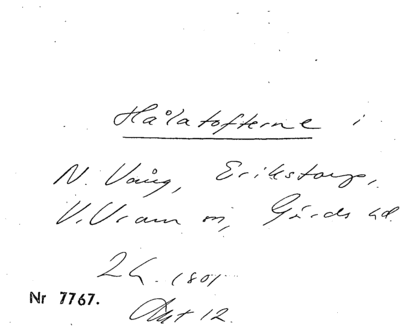 Hålatofterne i
N. Vång, Erikstorp,
V. Vram sn, Gärds hd.
2 h. 1801
Nr 7767.
Akt 12.